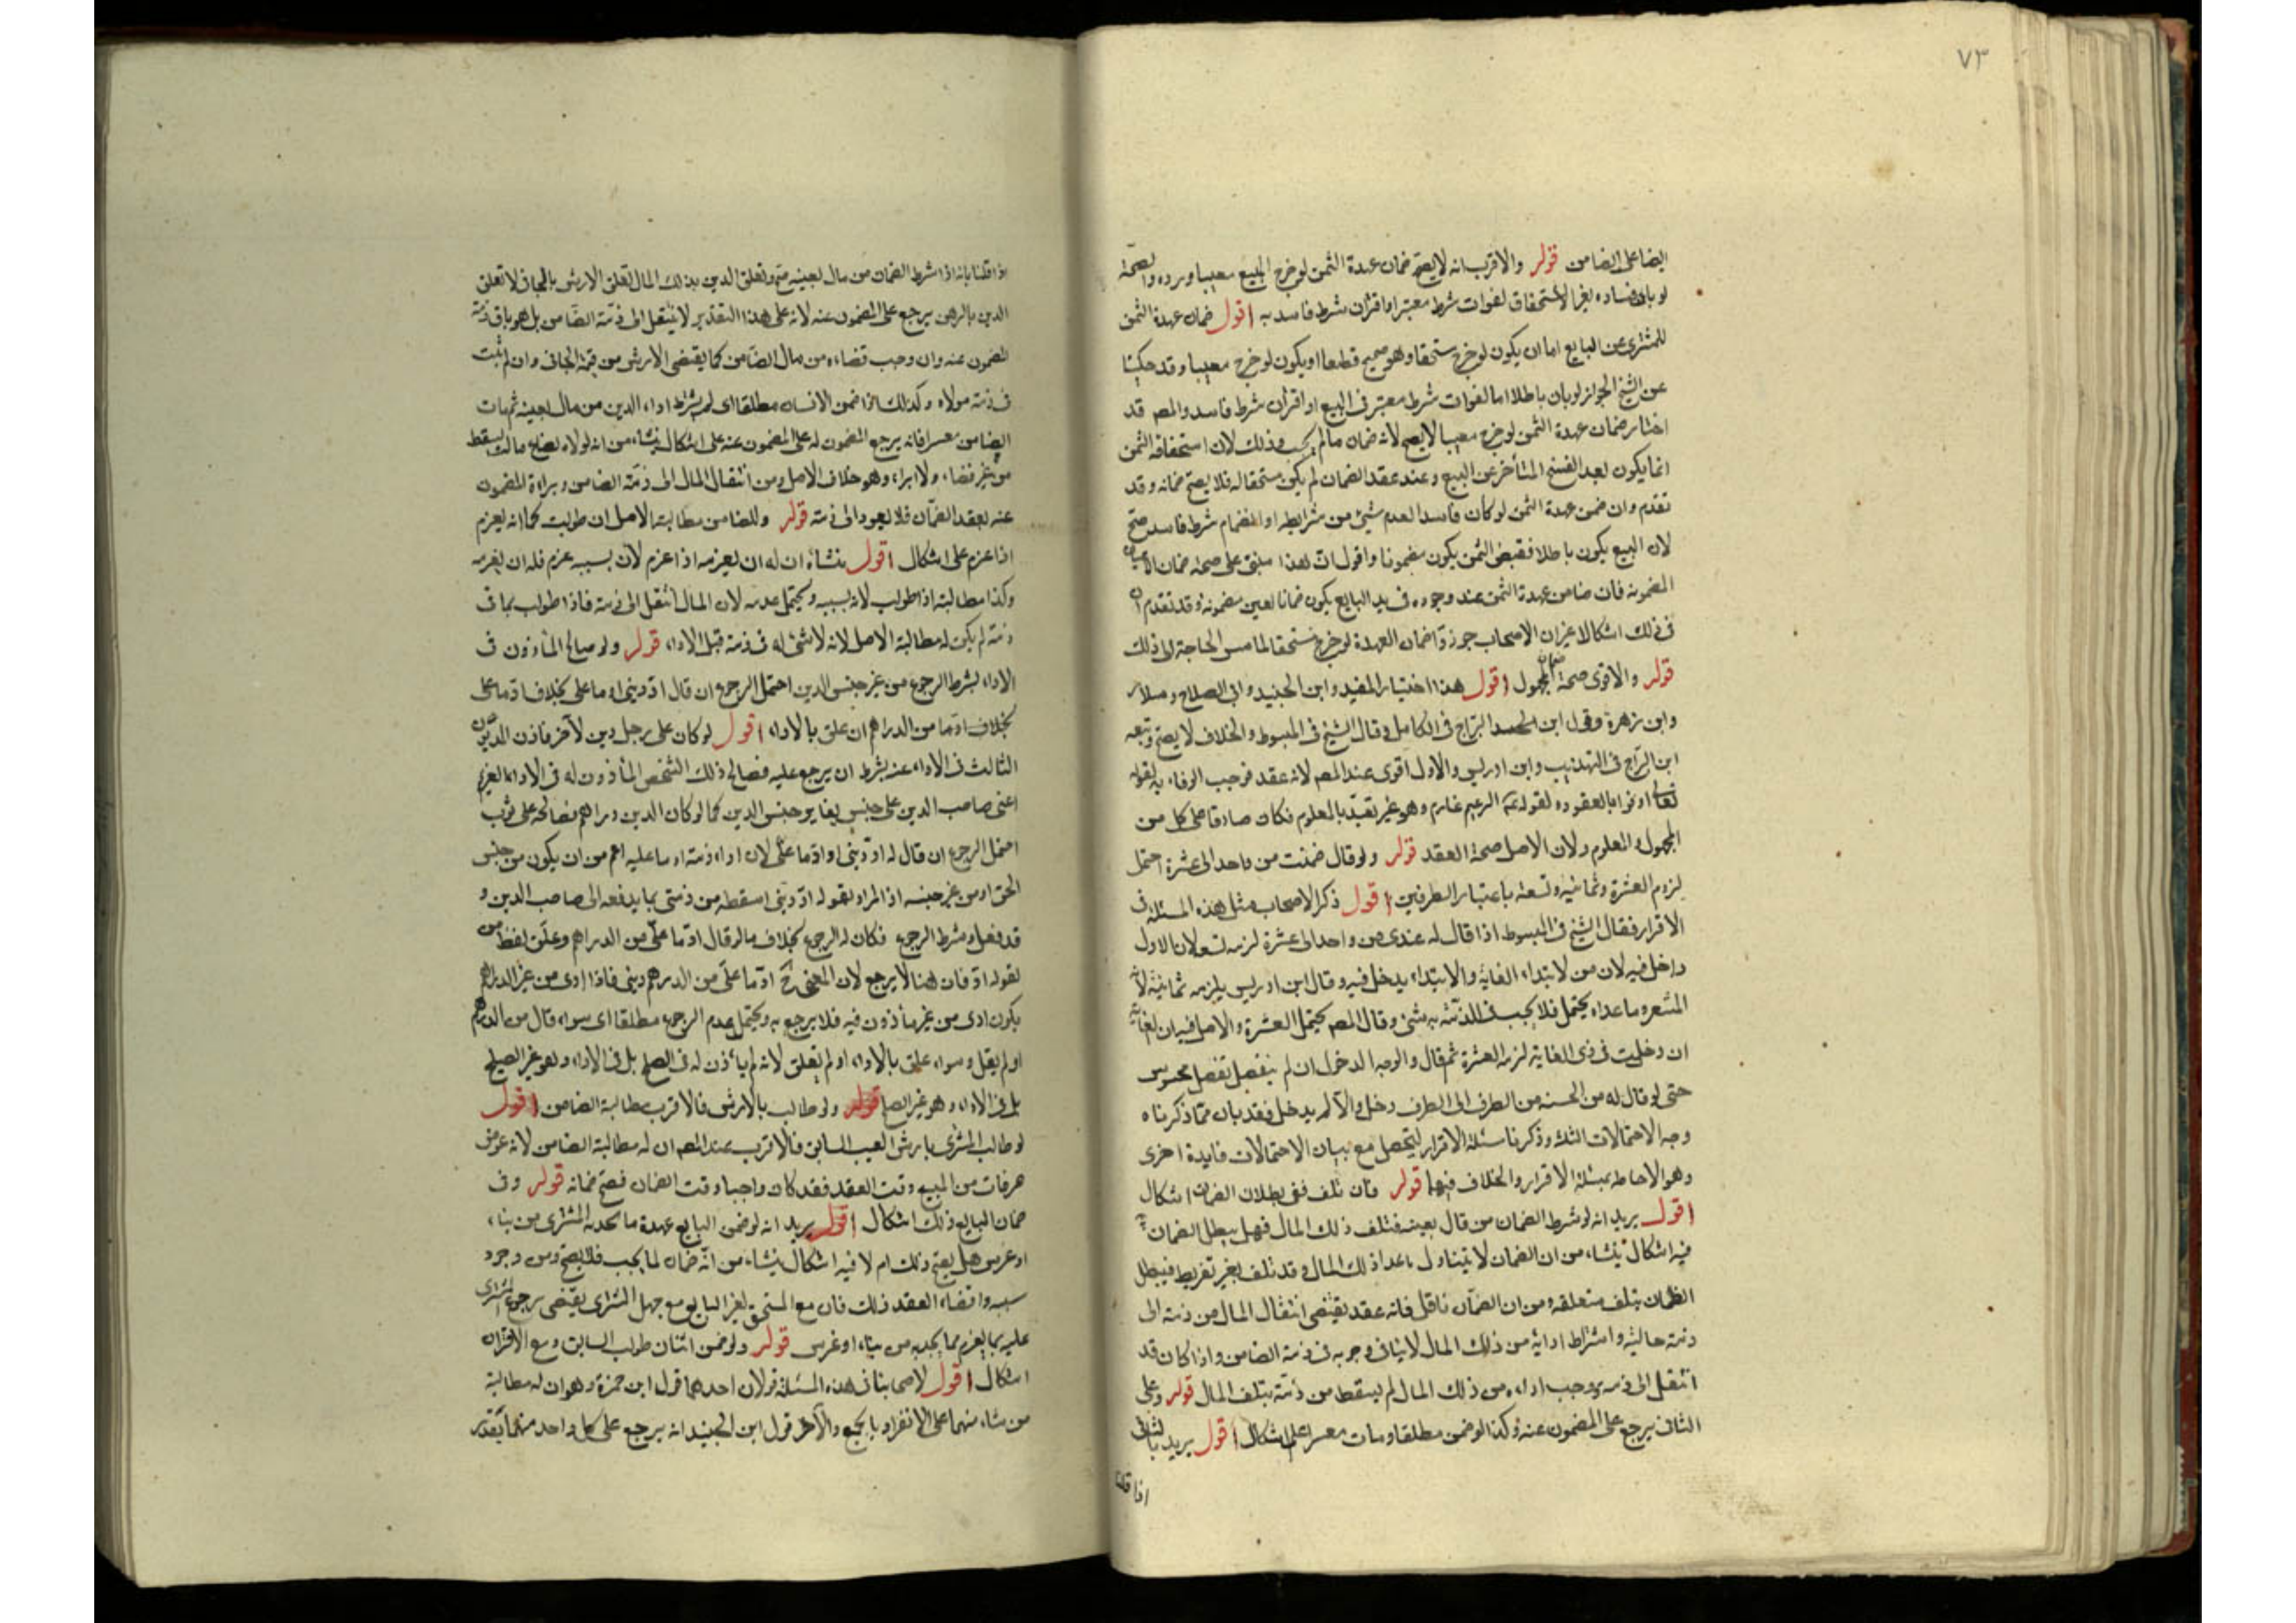 ٧٣
ايضا على الضامن قوله والاقرب انه لا يصح ضمان عهدة الثمن لو خرج المبيع معيبا ورده والصحة
لو بان فساده بغير الاستحقاق لفوات شرط معتبر او اقتران شرط فاسد به اقول ضمان عهدة الثمن
للمشترى عن البايع اما ان يكون لو خرج مستحقا وهو صحيح قطعا او يكون لو خرج معيبا وقد حكينا
عن الشيخ الجواز لو بان باطلا اما لفوات شرط معتبر فى البيع او اقتران شرط فاسد والمص قد
اختار ضمان عهدة الثمن لو خرج معيبا لا يصح لانه ضمان ما لم يجب وذلك لان استحقاقه الثمن
انما يكون بعد الفسخ المتأخر عن البيع وعند عقد الضمان لم يكن مستحقا له فلا يصح ضمانه وقد
تقدم وان ضمن عهدة الثمن لو كان فاسدا لعدم شىء من شرايطه او انضمام شرط فاسد صح
لان البيع يكون باطلا فقبض الثمن يكون مضمونا واقول ان هذا مبنى على صحة ضمان الاعيان
المضمونة فان ضامن عهدة الثمن عند وجوده فى يد البايع يكون ضمانا لعين مضمونة وقد تقدم ان
فى ذلك اشكالا غير ان الاصحاب جوزوا ضمان العهدة لو خرج مستحقا لمامس الحاجة الى ذلك
قوله والاقوى صحة ضمان المجهول اقول هذا اختيار المفيد وابن الجنيد وابى الصلاح وسلار
وابن زهرة وقول ابن البراج فى الكامل وقال الشيخ فى المبسوط والخلاف لا يصح وتبعه
ابن البراج فى المهذب وابن ادريس والاول اقوى عند المص لانه عقد فوجب الوفاء به لقوله
تعالى اوفوا بالعقود ولقوله الزعيم غارم وهو غير تقيد بالمعلوم فكان صادقا على كل من
المجهول والمعلوم ولان الاصل صحة العقد قوله ولو قال ضمنت من واحد الى عشرة احتمل
لزوم العشرة وثمانية وتسعة باعتبار الطرفين اقول ذكر الاصحاب مثل هذه المسئلة فى
الاقرار فقال الشيخ فى المبسوط اذا قال له عندى من واحد الى عشرة لزمه تسعة لان الاول
داخل فيه لان من لابتداء الغاية والابتداء يدخل فيه وقال ابن ادريس يلزمه ثمانية لان
وما عداه يحتمل فلا يجب فى الذمة به شىء وقال المص يحتمل العشرة والاصل فيه ان الغاية
ان دخلت فى ذى الغاية لزمه العشرة ثم قال والوجه الدخول ان لم ينفصل تفصل محسوس
حتى لو قال له من الحسنه من الطرف الى الطرف دخل والا لم يدخل فقد بان مما ذكرناه
وجه الاحتمالات الثلث وذكرنا مسئلة الاقرار ليتحصل مع بيان الاحتمالات فايدة اخرى
وهو الاحاطة بمسئلة الاقرار والخلاف فيها قوله فان تلف ففى بطلان الضمان اشكال
اقول يريد انه لو شرط الضمان من قال بعينه فتلف ذلك المال فهل يبطل الضمان
فيه اشكال ينشاء من ان الضمان لا يتناول ما عدا ذلك المال وقد تلف بغير تفريط فيبطل
الضمان بتلف متعلقه ومن ان الضمان ناقل فانه عقد يقتضى انتقال المال من ذمة الى
ذمة خالية واشتراط ادائه من ذلك المال لا ينافى وجوبه فى ذمة الضامن واذا كان قد
انتقل الى ذمته ووجب اداءه من ذلك المال لم يسقط من ذمته بتلف المال قوله وعلى
الثانى يرجع على المضمون عنه وكذا لو ضمن مطلقا ومات معسرا على اشكال اقول يريد بالثانى
اذا قلنا
اذا قلنا بانه اذا شرط الضمان من مال بعينه صح وتعلق الدين بذلك المال تعلق الارش بالجانى لا تعلق
الدين بالرهن يرجع على المضمون عنه لانه على هذا التقدير لا ينتقل الى ذمة الضامن بل هو باق ذمة
المضمون عنه وان وجب قضاءه من مال الضامن كما يقتضى الارش من قيمة الجانى وان لم يثبت
فى ذمة مولاه وكذلك اذا ضمن الانسان مطلقا اى لم يشترط اداء الدين من مال بعينه ثم مات
الضامن معسرا فانه يرجع المضمون له على المضمون عنه على اشكال ينشاء من انه لولاه لضاع ماله وسقط
من غير قضاء ولا ابراء وهو خلاف الاصل ومن انتقال المال الى ذمة الضامن وبراءة المضمون
عنه بعقد الضمان فلا يعود الى ذمته قوله وللضامن مطالبة الاصل ان طولب كما انه يغرم
اذا غرم على اشكال اقول ينشاء ان له ان يغرمه اذا غرم لان بسببه غرم فله ان يغرمه
وكذا مطالبته اذا طولب لانه بسببه ويحتمل عدمه لان المال انتقل الى ذمته فاذا طولب بما فى
ذمته لم يكن له مطالبة الاصل لانه لا شىء له فى ذمته قبل الاداء قوله ولو صالح المأذون فى
الاداء بشرط الرجوع من غير جنس الدين احتمل الرجوع ان قال اد دينى او ما على بخلاف اد ما على
بخلاف اد ما من الدراهم ان علق بالاداء اقول لو كان على رجل دين لآخر فاذن المديون
الثالث فى الاداء عنه بشرط ان يرجع عليه فصالح ذلك الشخص المأذون له فى الاداء الغريم
اعنى صاحب الدين على جنس يغاير جنس الدين كما لو كان الدين دراهم فصالحه على ثوب
احتمل الرجوع ان قال له اد دينى او اد ما على لان اداء ذمته او ما عليه اعم من ان يكون من جنس
الحق او من غير جنسه اذ المراد بقوله اد دينى اسقطه من ذمتى بما يدفعه الى صاحب الدين و
قد فعل وشرط الرجوع فكان له الرجوع بخلاف ما لو قال اد ما على من الدراهم وعلق لفظ من
بقوله اد فان هنا لا يرجع لان المعنى ح اد ما على من الدرهم دينى فاذا ادى من غير الدراهم
يكون ادى من غير مأذون فيه فلا يرجع به ويحتمل عدم الرجوع مطلقا اى سواء قال من الدرهم
او لم يقل وسواء علق بالاداء او لم يعلق لانه لم يأذن له فى الصلح بل فى الاداء وهو غير الصلح
بل فى الاداء وهو غير الصلح قوله ولو طالب بالارش فالاقرب مطالبة الضامن اقول
لو طالب المشترى بارش العيب السابق فالاقرب عند المص ان له مطالبة الضامن لانه عوض
جزء فات من المبيع وقت العقد فقد كان واجبا وقت الضمان فصح ضمانه قوله وفى
ضمان البايع ذلك اشكال اقول يريد انه لو ضمن البايع عهدة ما يحدثه المشترى من بناء
او غرس هل يصح ذلك ام لا فيه اشكال ينشاء من انه ضمان لما يجب فلا يصح ومن وجود
سببه واقتضاء العقد ذلك فان مع المستحق لغير البايع مع جهل المشترى يقتضى رجوع المشترى
عليه بما يغرم مما يحدثه من بناء او غرس قوله ولو ضمن اثنان طولب السابق ومع الاقتران
اشكال اقول لاصحابنا فى هذه المسئلة قولان احدهما قول ابن حمزة وهو ان له مطالبة
من شاء منهما على الانفراد بالجميع والآخر قول ابن الجنيد انه يرجع على كل واحد منهما بقدر